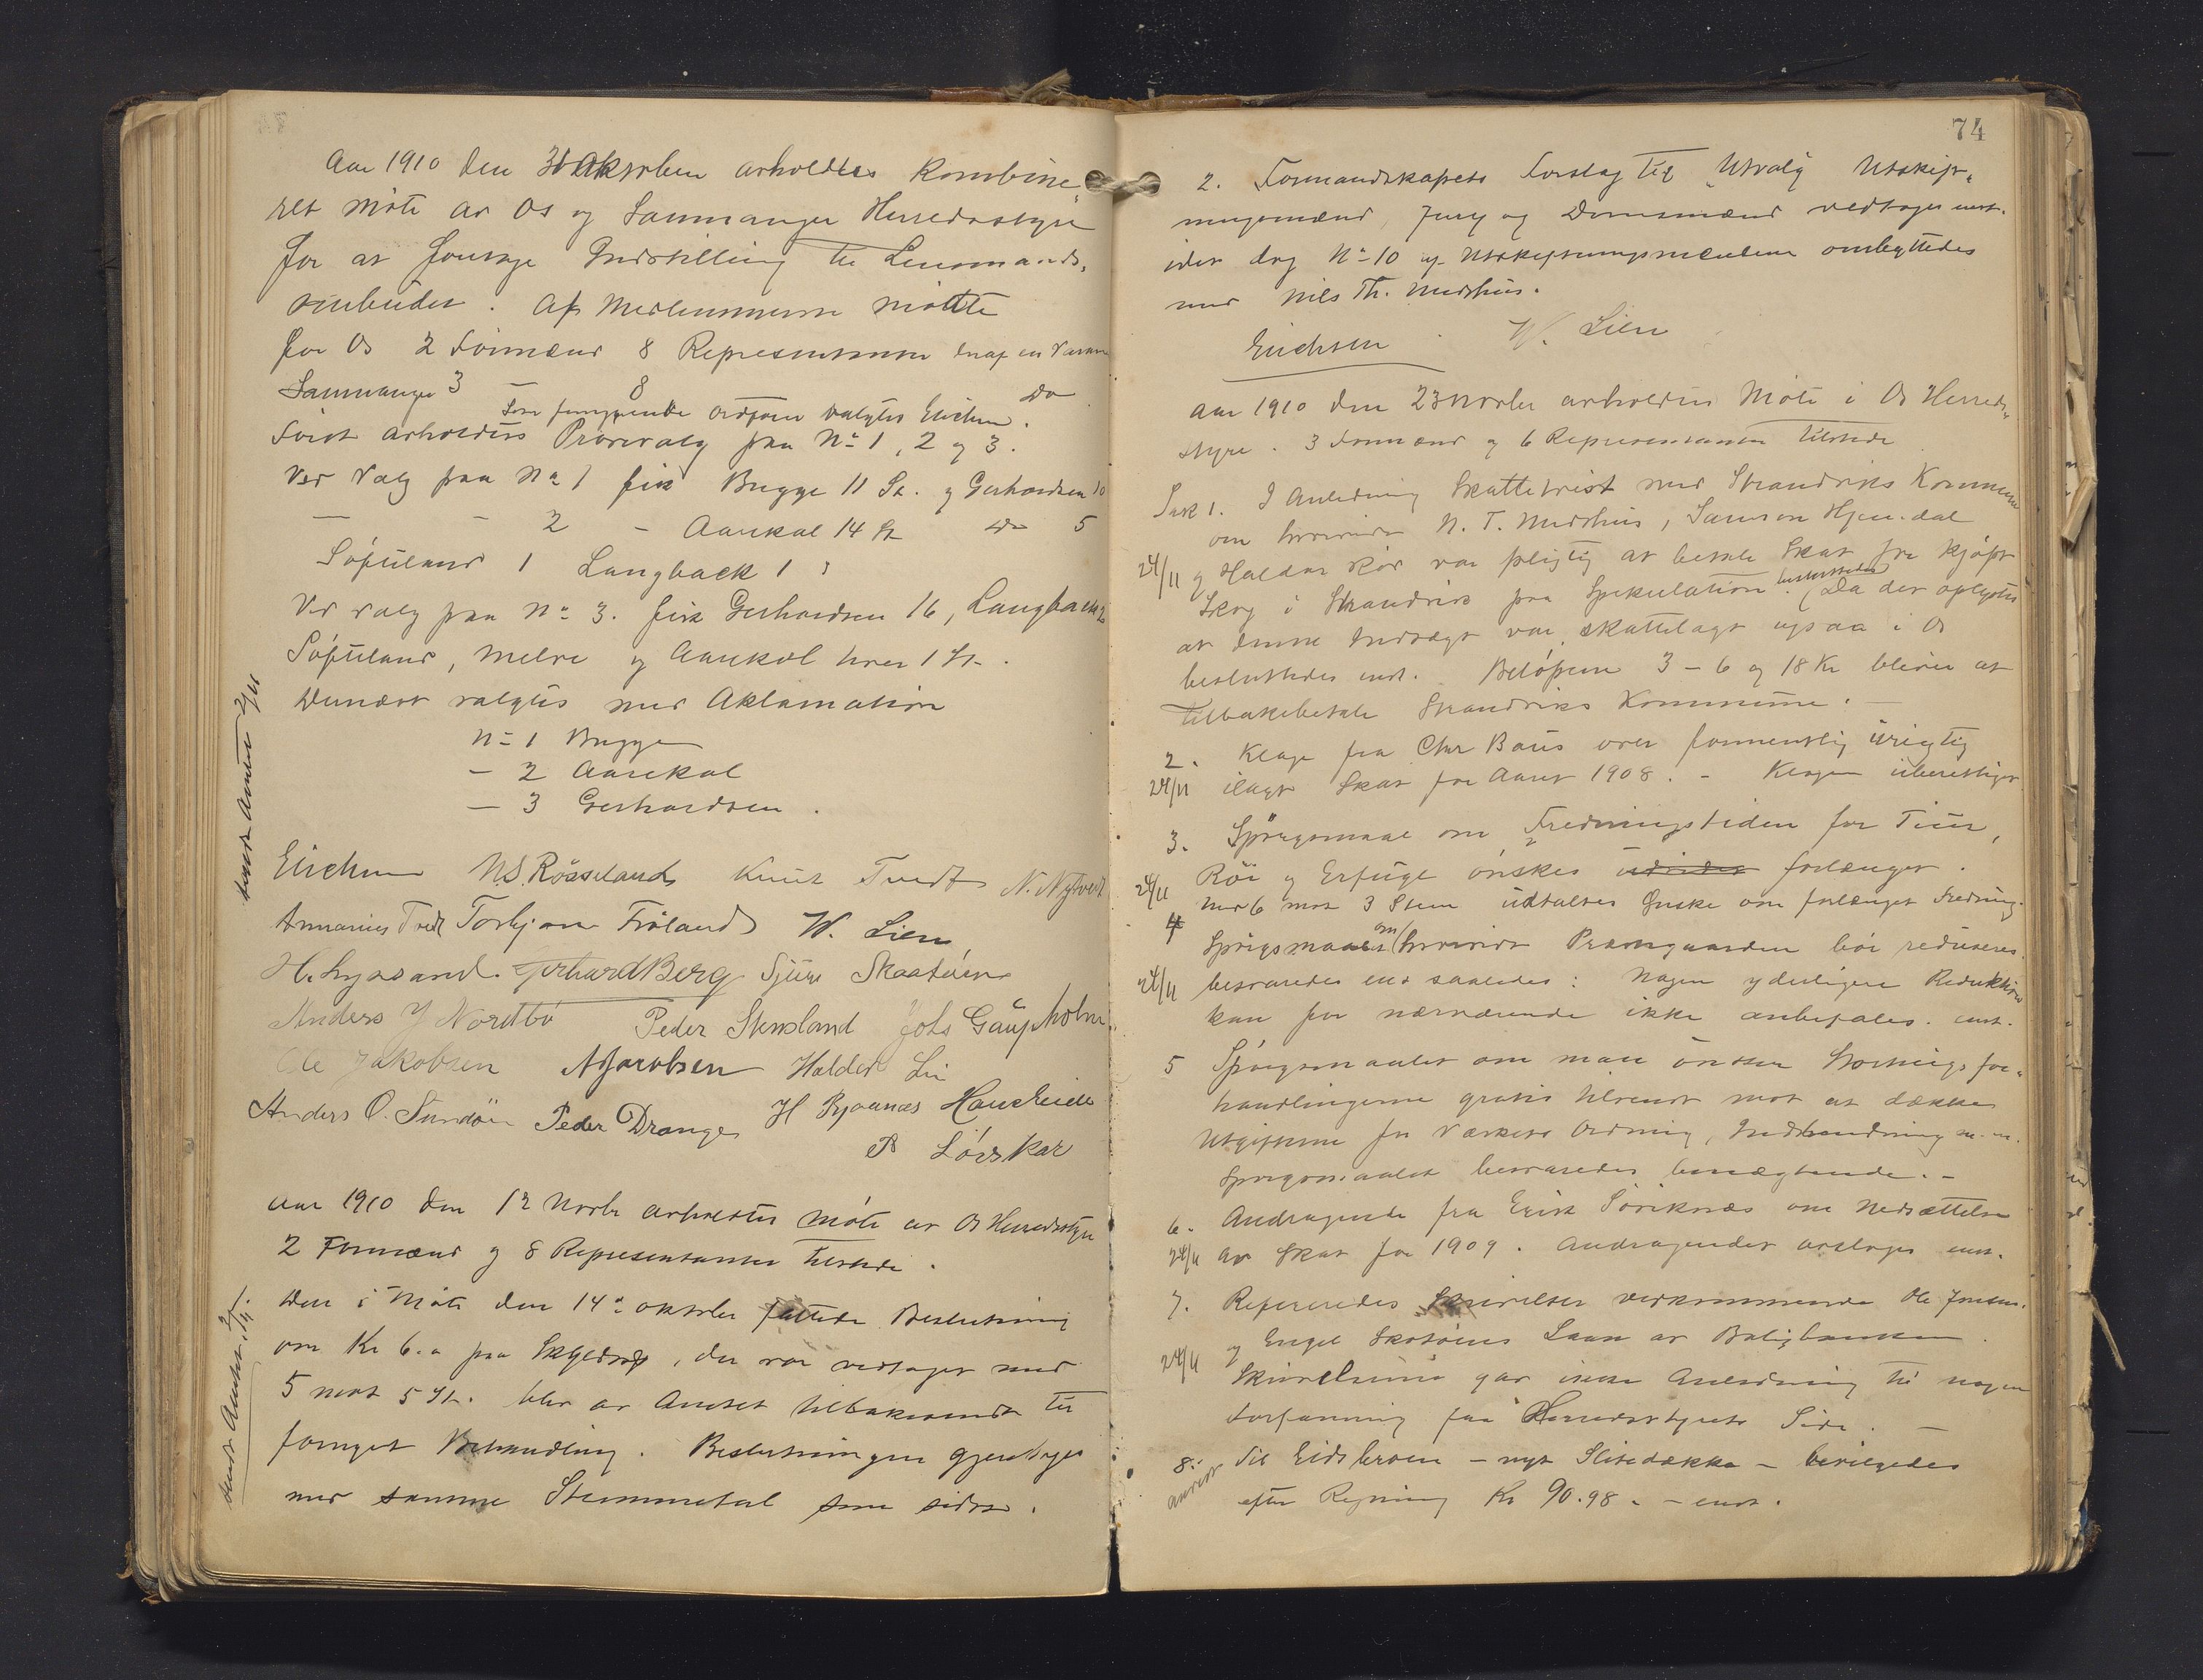 Aar 1910 den 31 Oktober avholdtes kombine-
ret møte av Os og Sammanger Herredsstyre
for at foretage Indstilling til Lensmands-
ombudet. Af Medlemmerne møtte
for Os 2 Formænd 8 Repræsentanter deraf en Varam
Sammanger 3 — 8 Do
Som fungerende Ordfører valgtes Erichsen.
Først avholdtes Prøvevalg paa No 1, 2 og 3.
Ved Valg paa No 1 fik Brygge 11 St. og Gerhardsen 10
— - 2 - Aarekol 14 St Do 5
Søfteland 1 Langback 1
Ved valg paa No 3. fik Gerhardsen 16, Langback 2
Søfteland, Melve og Aarekol hver 1 St.
Dernæst valgtes med Aklamation
No 1 Brygge
- 2 Aarekol
- 3 Gerhardsen.
sendt Amtet 2/11
Erichsen N.S. Røsseland Knut Tvedt N. Nytvedt
Ammanius Tvedt Torbjørn Frøland W. Lien
H. Lyssand. Gerhard Berg Sjur Skaatun
Anders J Nordbø Peder Stensland Johs Gaupholm
Ole Jakobsen A Jacobsen Haldor Lie
Anders O. Sundøen Peder Drange H Bjaanæs Haukeide
P Løvskar
Aar 1910 den 12 Novbr avholdtes møte av Os Herredsstyre
2 Formænd og 8 Repræsentanter tilstede.
Den i Møte den 14de oktober fattede Beslutning
om Kr 6.- paa Skydsrep, der var vedtaget med
5 mot 5 St. blev av Amtet tilbakesendt til
fornyet Behandling. Beslutningen gjentages
med samme Stemmetal som sidst.
sendt Amtet
74
2. Formandskapets Forslag til Utvalg Utskift-
ningsmænd, Jury og Domsmænd vedtages enst.
idet dog No 10 af Utskiftningsmændene ombyttedes
med Nils Th. Midthus.
Erichsen W. Lien
Aar 1910 den 23 Novbr avholdtes Møte i Os Herreds-
styre. 3 Formænd og 6 Repræsentanter tilstede
Sak 1. I Anledning Skattetvist med Strandviks Kommune
om hvorvidt N. T. Midthus, Samson Hjelledal
24/11 og Haldor Røv var pligtig at betale Skat for kjøpt
Skog i Strandvik paa Spekulation besluttedes. (Da der oplystes
at denne Indtægt var skattelagt ogsaa i Os
besluttedes enst. Beløpene 3 - 6 og 18 Kr bliver at
tilbakebetale Strandviks Kommune. —
2. Klage fra Chr Baus over formentlig urigtig
24/11 ilagt Skat for Aaret 1908. - Klagen uberettiget
3. Spørgsmaal om Fredningstiden for Tiur,
Røi og Erfugl ønskes utvidet forlænget.
24/11 Med 6 mot 3 Stem udtaltes Ønske om forlænget Fredning.
4 Spørgsmaalet om hvorvidt Præstegaarden bør reduseres
24/11 besvaredes enst saaledes: Nogen yderligere Reduktion
kan for nærværende ikke anbefales. enst.
5 Spørgsmaalet om man ønsker Stortingsfor-
handlingerne gratis tilsendt mot at dække
Utgifterne for Værkets Ordning, Indbinding m.m.
Spørgsmaalet besvaredes benægtende. -
6. Andragende fra Erik Søviknæs om Nedsættelse
24/11 av Skat for 1909. Andragendet avslages enst.
7. Refereredes Skrivelser vedkommende Ole Jonsen.
og Engel Skotøiens Laan av Boligbanken.
24/11 Skrivelserne gav ikke Anledning til nogen
Forføining fra Herredsstyrets Side. —
8. Til Eidsbroen - nyt Slitedække - bevilgedes
anvist efter Regning Kr 90.98. - enst.